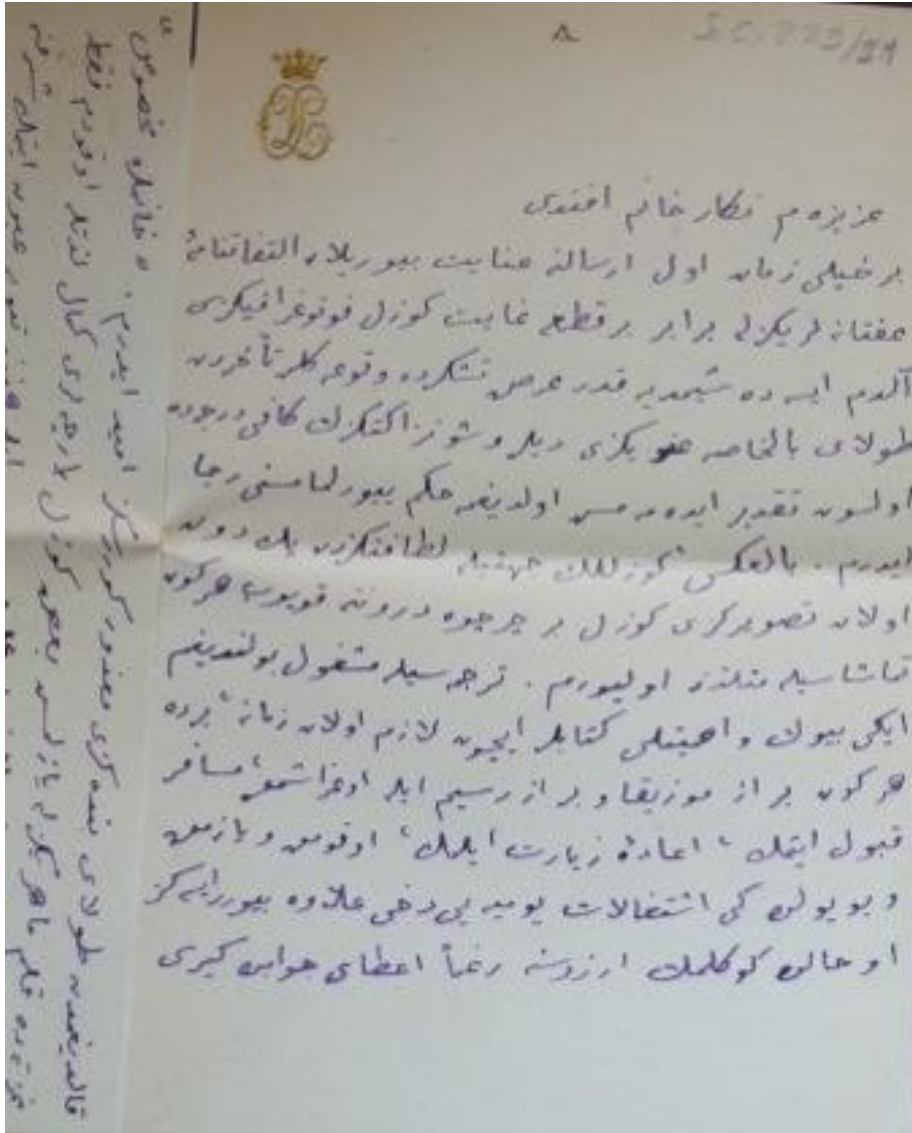 S.C. 223/24
٨
عزیزه م نكار خانم افندی
بر خیلی زمان اول ارسالنه عنایت بیوریلان التفاتنامهٔ
عفتانه لریكزله برابر بر قطعه غایت كوزل فوتوغرافیكزی
آلدم ایسه ده شیمدیه قدر عرض تشكرده وقوعه كلن تأخردن
طولای بالخاصه عفویكزی دیلر و شو نزاكتكزك كافی درجه ده
اولسون تقدیر ایده مه مش اولدیغمه حكم بیورلمامسنی رجا
ایدرم . بالعكس كوزللك جهتیله لطافتكزدن پك دون
اولان تصویركزی كوزل بر چرچوه دروننه قویوب هر كون
تماشاسیله متلذذ اولیورم . ترجمه سیله مشغول بولندیغم
ایكی بیوك و اهمیتلی كتابلر ایچون لازم اولان زمانه برده
هر كون بر از موزیقا و بر از رسیم ایله اوغراشمق، مسافر
قبول ایتمك، اعادهٔ زیارت ایلمك، اوقومق و یازمق
و بو یولده كی اشتغالات یومیه یی دخی علاوه بیوررایسه كز
او حالده كوكلمك ارزوسنه رغماً اعطای جوابده كیری
قالدیغمدن طولای بنده كزی معذور كوررسكز امید ایدرم.
خانملره مخصوص
غزته ده قلم ماهرانه كزله یازلمش بعض كوزل پارچه لری كمال لذتله اوقودم فقط